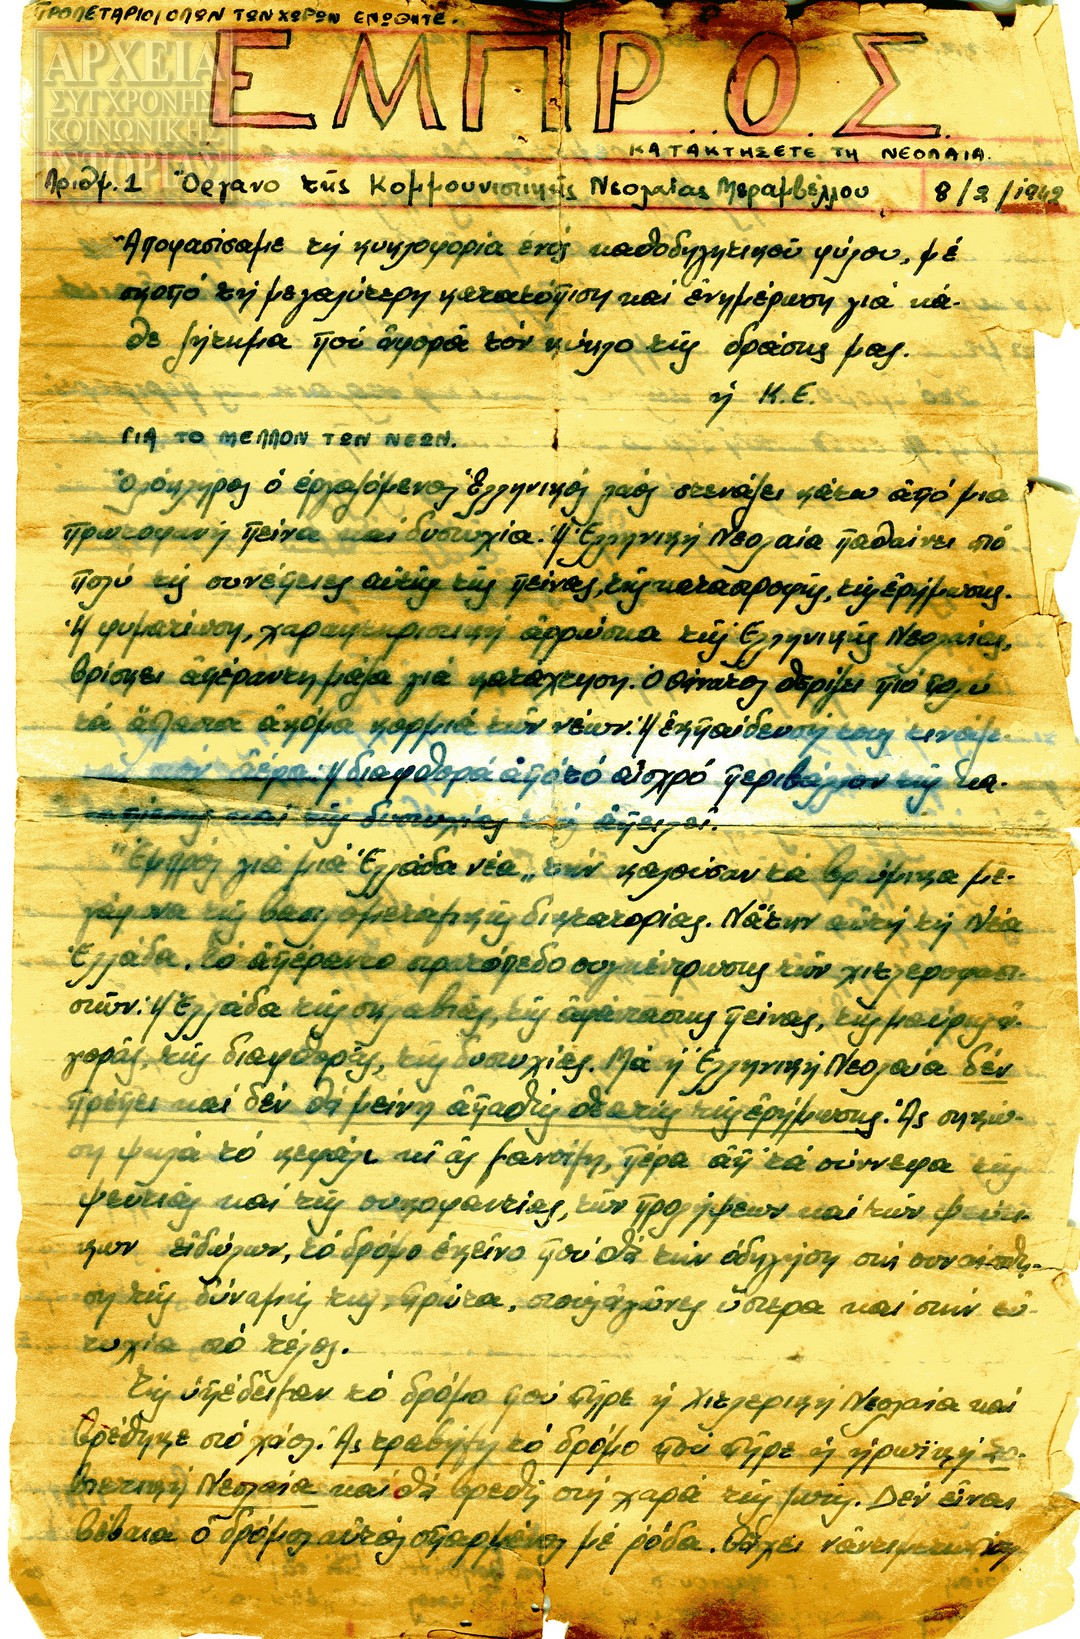 ΠΡΟΛΕΤΑΡΙΟΙ ΟΛΩΝ ΤΩΝ ΧΩΡΩΝ ΕΝΩΘΗΤΕ.
ΑΡΧΕΙΑ
ΣΥΓΧΡΟΝΗΣ
ΚΟΙΝΩΝΙΚΗΣ
ΙΣΤΟΡΙΑΣ
ΕΜΠΡΟΣ
ΚΑΤΑΚΤΗΣΕΤΕ ΤΗ ΝΕΟΛΑΙΑ.
Αριθμ. 1 Ὄργανο τῆς Κομμουνιστικῆς Νεολαίας Μεραμβέλλου 8/2/1942
Ἀποφασίσαμε τή κυκλοφορία ἑνός καθοδηγητικοῦ φύλου, μέ
σκοπό τή μεγαλύτερη κατατόπιση και ἐνημέρωση γιά κά-
θε ζήτημα πού ἀφορᾶ τόν κύκλο τῆς δράσης μας.
ἡ Κ.Ε.
ΓΙΑ ΤΟ ΜΕΛΛΟΝ ΤΩΝ ΝΕΩΝ.
Ὁλόκληρος ὁ ἐργαζόμενος Ἑλληνικός λαός στενάζει κάτω ἀπό μια
πρωτοφανή πείνα και δυστυχία. Ἡ Ἑλληνική Νεολαία παθαίνει πιό
πολύ τις συνέπειες αὐτῆς τῆς πείνας, τῆς καταστροφῆς, τῆς ἐρήμωσης.
Ἡ φυματίωση, χαρακτηριστική ἀρρώστια τῆς Ἑλληνικῆς Νεολαίας,
βρίσκει ἀπέραντη μάζα γιά κατάχτηση. Ὁ θάνατος θερίζει πιο πολύ
τά ἄπλαστα ἀκόμα κορμιά τῶν νέων. Ἡ ἐκπαίδευσή τους τινάζε-
ται στόν ἀέρα. Ἡ διαφθορά ἀπό τό αἰσχρό περιβάλλον τῆς κα-
ταπίεσης και τῆς δυστυχίας τούς ἀπειλεῖ.
"Ἐμπρός γιά μιά Ἑλλάδα νέα" τήν καλούσαν τά βρώμικα με-
γάφωνα τῆς βασιλομεταξικῆς δικτατορίας. Νάτην αὐτή τή Νέα
Ἑλλάδα, τό ἀπέραντο στρατόπεδο συγκέντρωσης τῶν χιτλεροφασι-
στῶν. Ἡ Ἑλλάδα τῆς σκλαβιάς, τῆς ἀφάνταστης πείνας, τῆς μαύρης ἀ-
γοράς, τῆς διαφθορᾶς, τῆς δυστυχίας. Μά ἡ Ἑλληνική Νεολαία δέν
πρέπει και δέν θά μείνη ἀπαθής θεατής τῆς ἐρήμωσης. Ἄς σηκώ-
ση ψηλά τό κεφάλι κι ἄς βαδίση, πέρα ἀπ' τά σύννεφα τῆς
ψευτιάς και τῆς συκοφαντίας, τῶν προλήψεων και τῶν ψεύτι-
κων εἰδώλων, τό δρόμο ἐκεῖνο πού θά τήν ὁδηγήση στή συναίσθη-
ση τῆς δύναμής της, πρώτα, στούς ἀγῶνες ὕστερα και στήν εὐ-
τυχία στό τέλος.
Τῆς ὑπέδειξαν τό δρόμο πού πῆρε ἡ Χιτλερική Νεολαία και
βρέθηκε στό χάος. Ἄς τραβήξη τό δρόμο πού πῆρε ἡ ἡρωϊκή Σο-
βιετική Νεολαία και θά βρεθῆ στή χαρά τῆς ζωῆς. Δέν εἶναι
βέβαια ὁ δρόμος αὐτός σπαρμένος μέ ρόδα. Θάχει ν'ἀντιμετωπίση